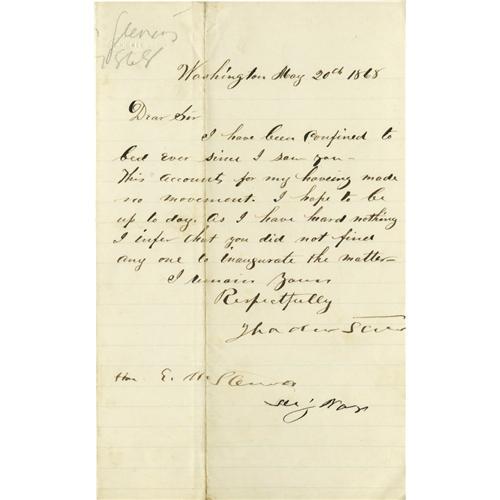 Stevens
1868
Washington May 20th 1868
Dear Sir
I have been Confined to
bed ever since I saw you –
This accounts for my haveing made
no movement. I hope to be
up to day. As I have heard nothing
I infer that you did not find
any one to inaugurate the matter –
I remain Yours
Respectfully
Thadeus Steven
Hon. E. M Stanton
Sec'y War